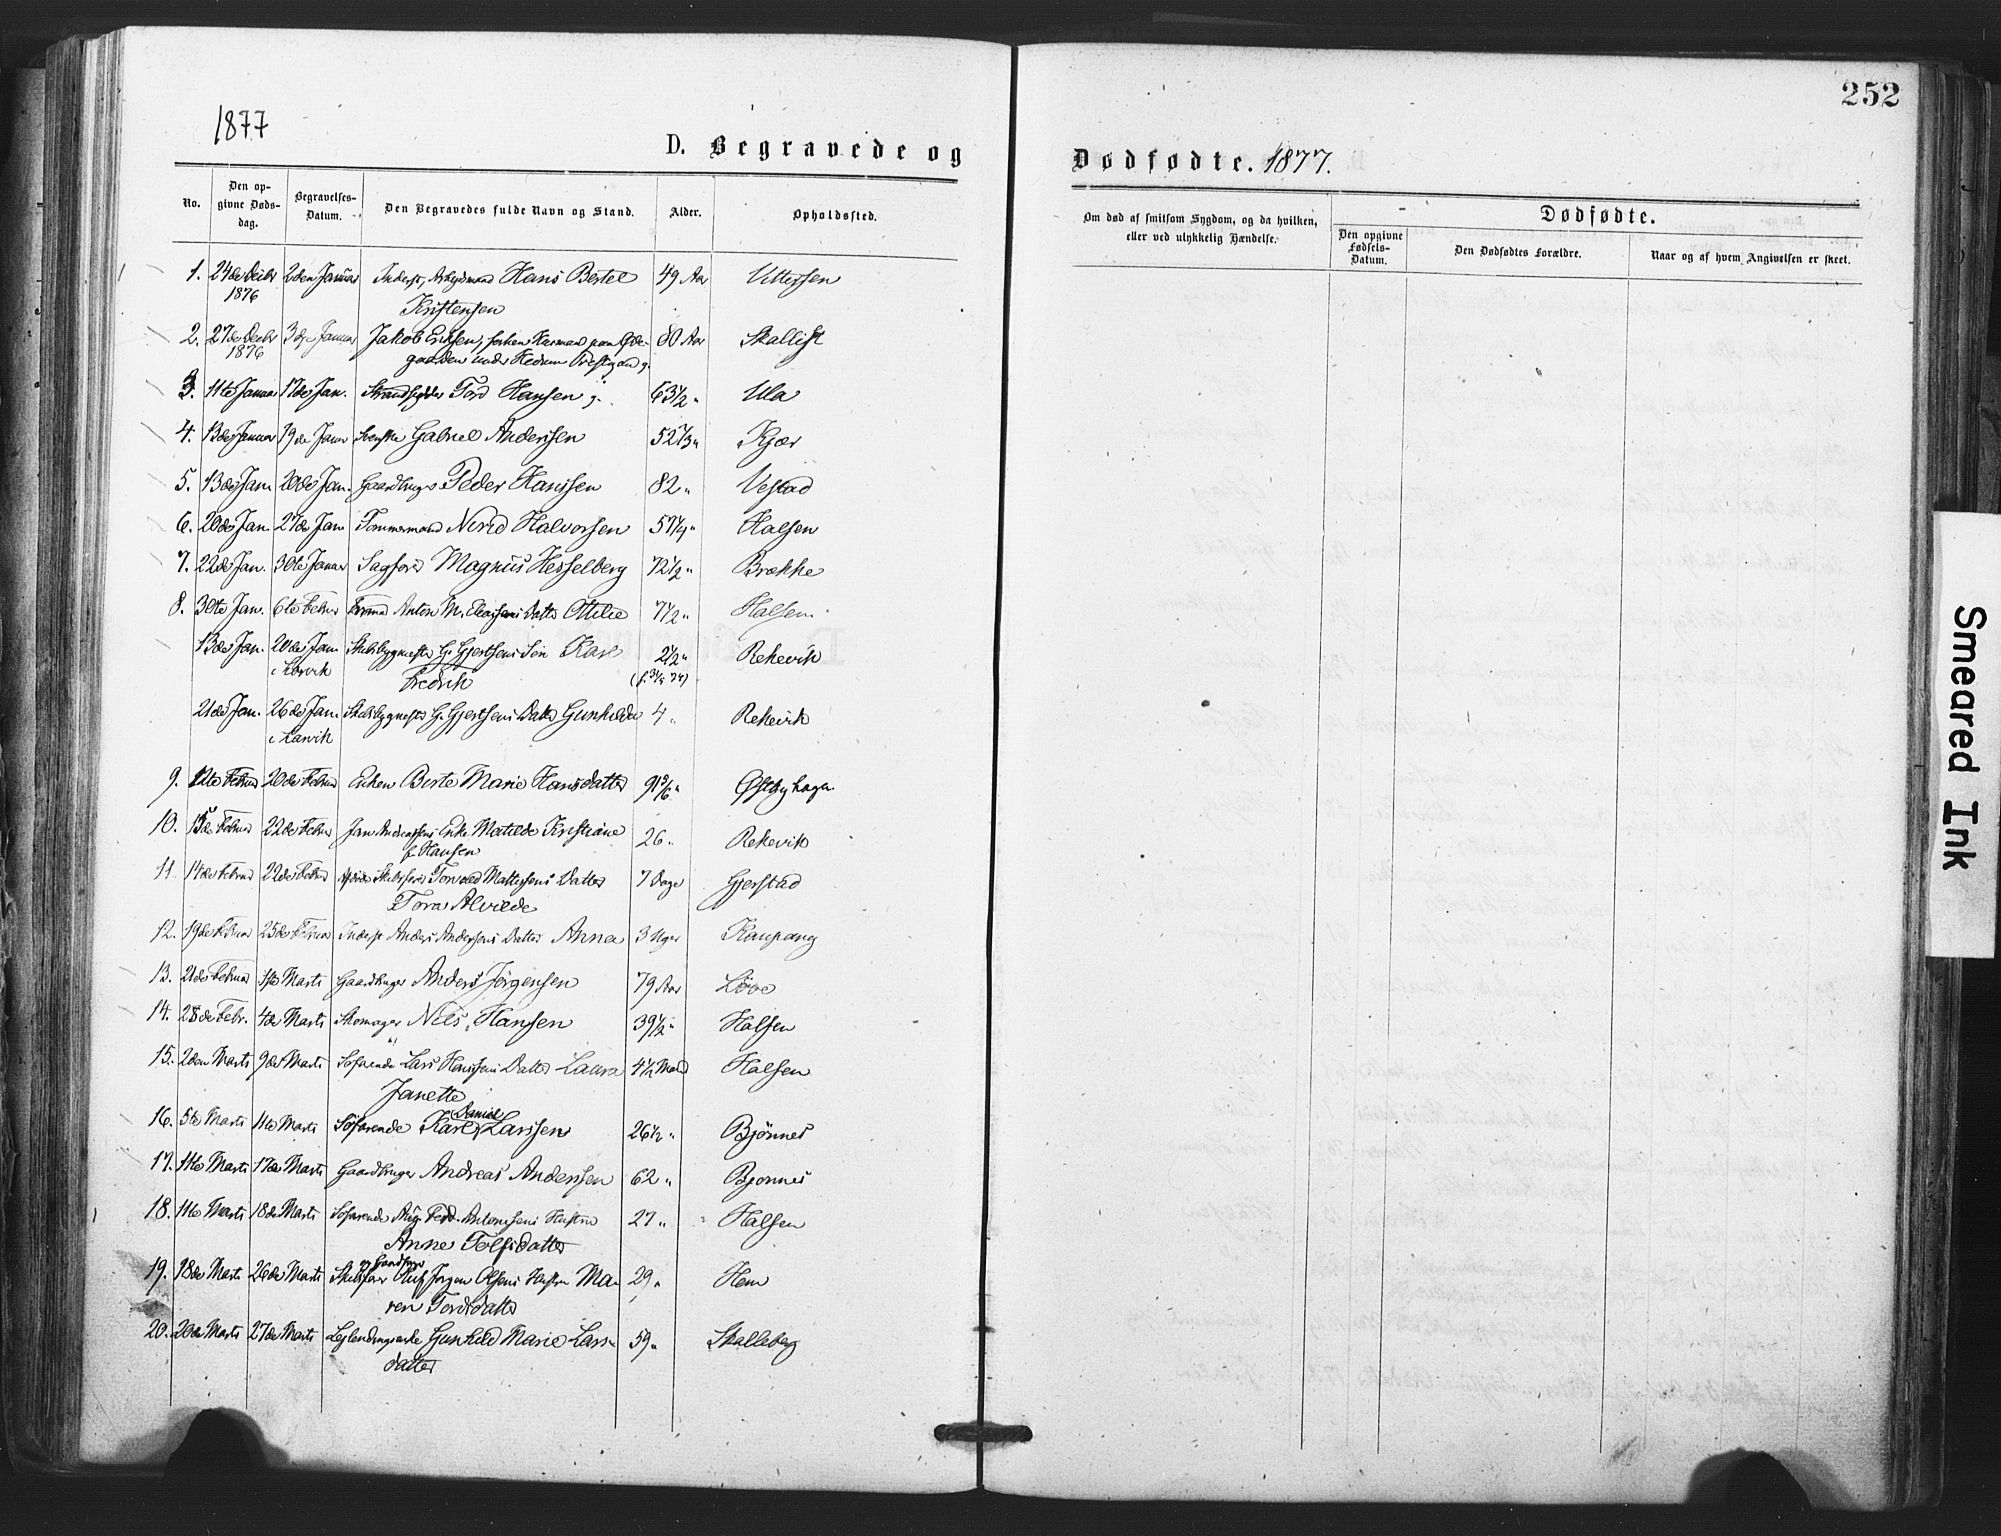 252
1877
D. Begravede og
Dødfødte. 1877.
No.
Den opgivne Dødsdag.
Begravelses-Datum.
Den Begravedes fulde Navn og Stand.
Alder.
Opholdssted.
Om død af smitsom Sygdom, og da hvilken, eller ved ulykkelig Hændelse.
Dødfødte.
Den opgivne Fødsels-Datum.
Den Dødfødtes Forældre.
Naar og af hvem Angivelsen er skeet.
1. 24de Decbr 1876 2den Januar Inderst, Arbeidsmand Hans Bertel Kristensen 49 Aar
2. 27de Decbr 1876 3dje Januar Jakob Eriksen, under Hedrum Præstegj. 80 Aar
3. 11te Januar 17de Jan. Strandsidder Tord Hansen 63½ " Ula
4. 13de Januar 19de Janr Svenske Gabriel Anderssen 52⅔ " Kjær
5. 13de Jan 20de Jan. Gaardbruger Peder Hanssen 82 " Vestad
6. 20de Jan. 27de Jan Tømmermand Halvorsen 57¼ " Halsen
7. 22de Jan. 30te Januar Sagfører Magnus Hesselberg 72½ " Brække
8. 30te Jan. 6te Februar Anton M. Datter Ottilie 7½ " Halsen
13de Jan. 20de Jan i Larvik Skibsbygmester G. Gjertsens Søn Karl Fredrik 2½ " Rekevik
21de Jan. 26de Jan. i Larvik Skibsbygmester G. Gjertsens Datter Gunhilde 4 " Rekevik
9. 12te Februar 20de Februar Enken Berte Marie Hansdatter 91 5/6 " Østbyhagen
10. 15de Februar 22de Februar Jan Andreassens Enke Matilde Kristiane f. Hansen 26 " Rekevik
11. 14de Februar 22de Februar Datter Tora Alvilde 7 Dage Gjerstad
12. 19de Februar 25de Februar Inderst Anders Andersens Datter Anna 3 Uger Kaupang
13. 21de Februar 1ste Marts Gaardbruger Anders Jørgensen 79 Aar Løve
14. 28de Febr. 4de Marts Skomager Nils Hansen 39½ " Halsen
15. 2den Marts 9de Marts Søfarende Lars Hanssens Datter Laura Janette 4½ Maaned Halsen
16. 5te Marts 11te Marts Søfarende Karl Daniel Larssen 26½ " Bjønnes
17. 11te Marts 17de Marts Gaardbruger Andreas Anderssen 62 " Bjønnes
18. 11te Marts 18de Marts Søfarende Aug. Ferd. Antonsens Hustru Anne Tolfsdatter 27 " Halsen
19. 18de Marts 26de Marts Skibsfører og Gaardbruger Jørgen Olsens Hustru Maren Tordsdatter 29 " Hem
20. 20de Marts 27de Marts Leilendingsenke Gunhild Marie Larsdatter 59 " Skalleberg
Smeared Ink